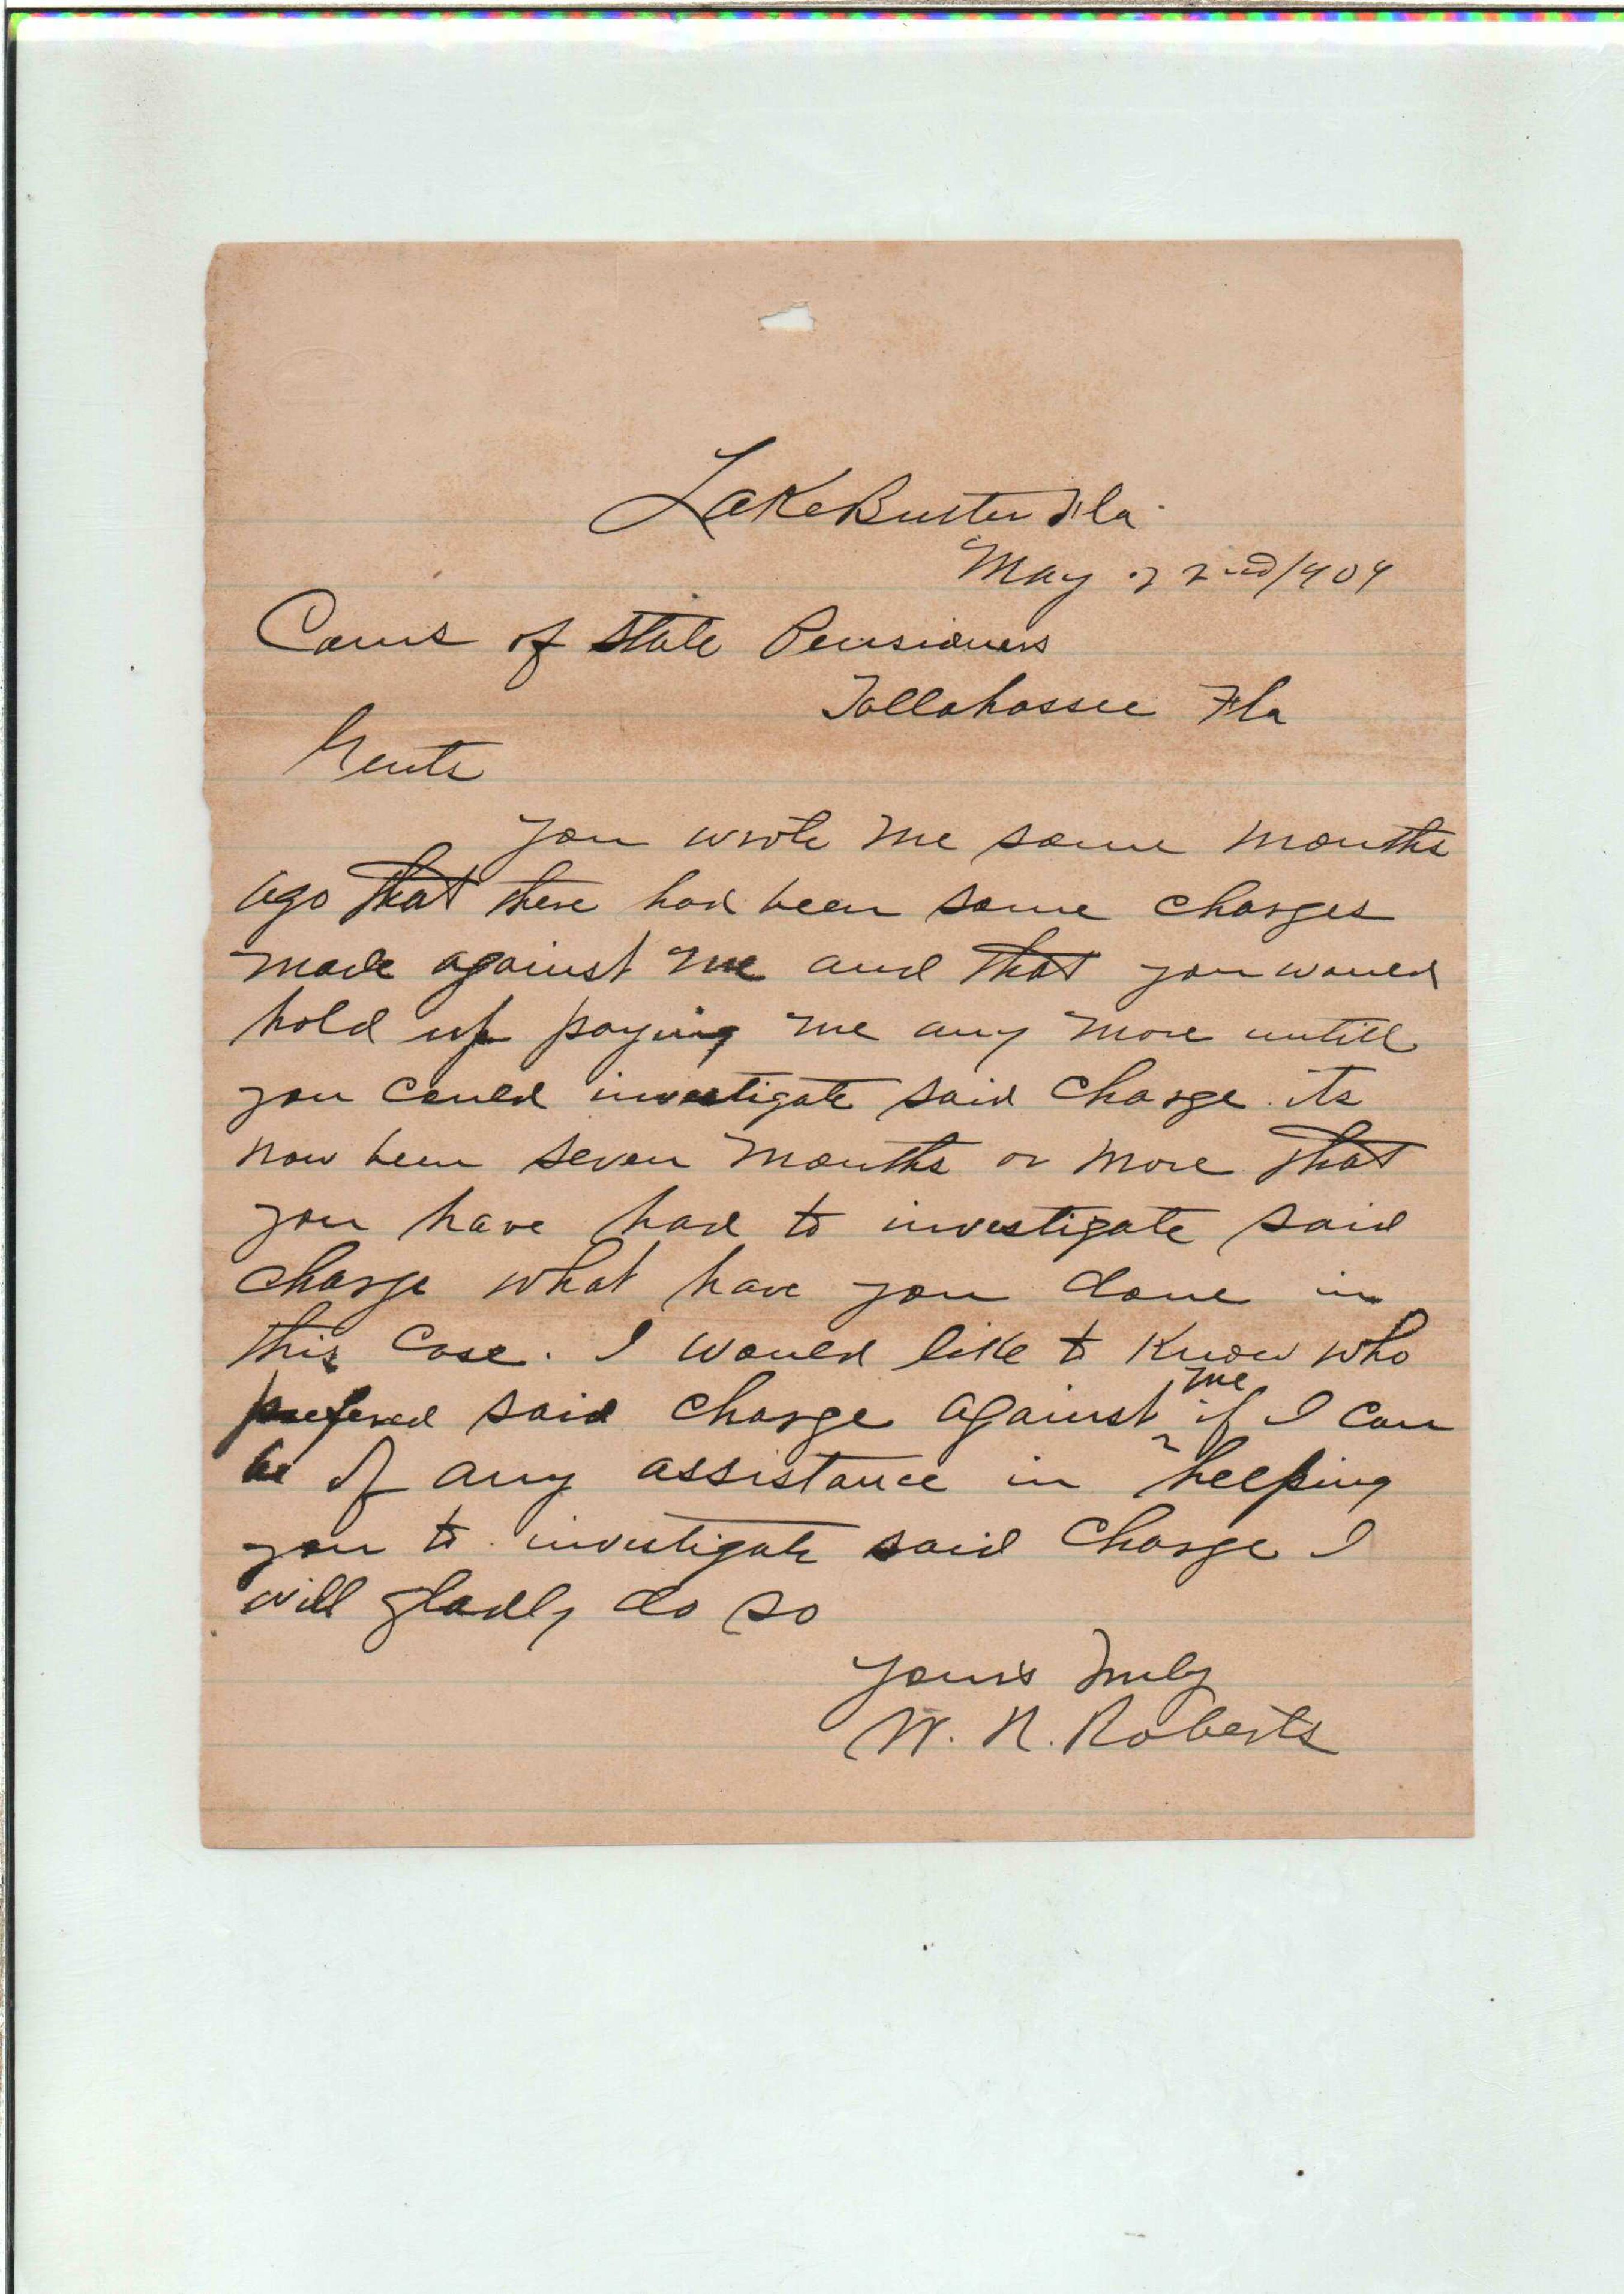 Lake Butler Fla.
May 22nd/1909
Coms of State Pensioners
Tallahassee Fla
Gents
You wrote me some months
ago that there had been some charges
made against me and that you would
hold up paying me any more untill
you could investigate said charge. its
now been seven months or more that
you have had to investigate said
charge what have you done in
this case. I would like to know who
prefered said charge against me if I can
be of any assistance in helping
you to investigate said charge I
will gladly do so
Yours Truly
W. N. Roberts